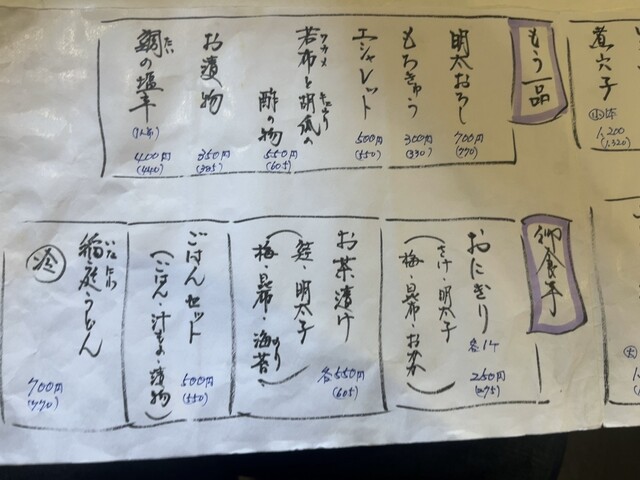 煮穴子
1,200
(1,320)
もう一品
明太おろし
700円
(770)
もろきゅう
300円
(330)
エシャレット
500円
(550)
若布と胡瓜の
ワカメ
きゅうり
酢の物
550円
(605)
お漬物
350円
(385)
鯛の塩辛
たい
(1人前)
400円
(440)
御食事
おにぎり
各1ケ
さけ・明太子
梅・昆布・おかか
250円
(275)
お茶漬け
鮭・明太子
梅・昆布・海苔
のり
各550円
(605)
ごはんセット
(ごはん・汁もの・漬物)
500円
(550)
稲庭うどん
いなにわ
冷
700円
(770)